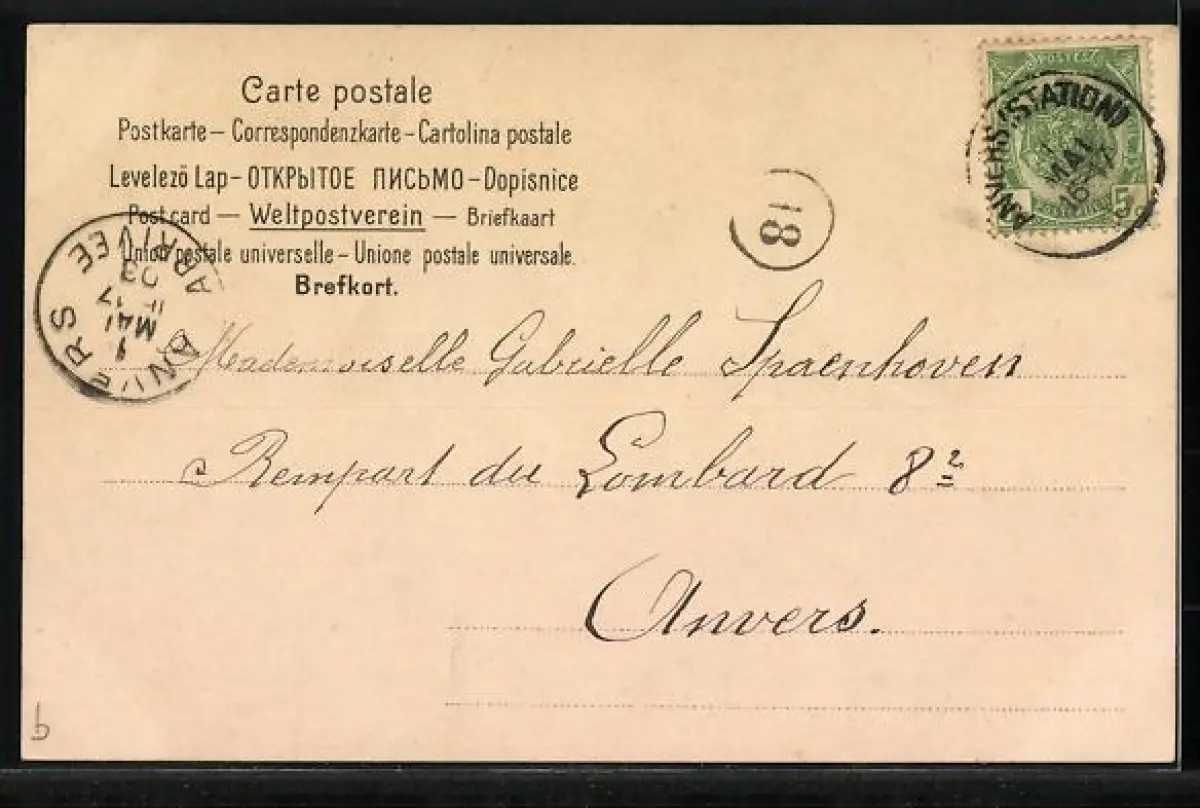 Carte postale
Postkarte – Correspondenzkarte – Cartolina postale
Levelező Lap – ОТКРЫТОЕ ПИСЬМО – Dopisnice
Post card — Weltpostverein — Briefkaart
Union postale universelle – Unione postale universale.
Brefkort.
POSTES
5
ANVERS (STATION)
1
MAI
16-17
18
ANVERS
ARRIVEE
1
MAI
17
03
Mademoiselle Gabrielle Spaenhoven
Rempart du Lombard 8²
Anvers.
b